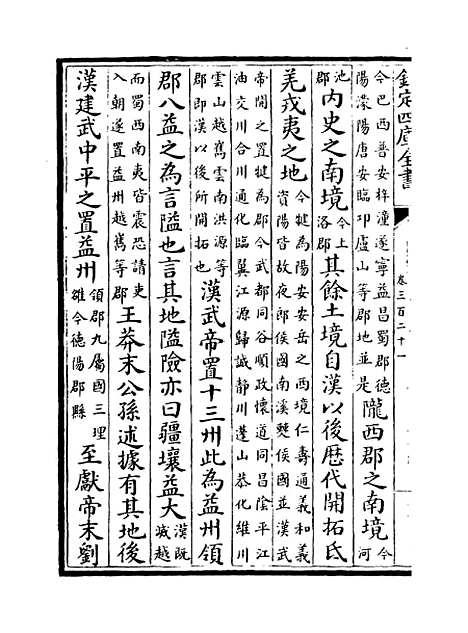 欽定四庫全書
卷三百二十一
今巴西普安梓潼遂寧益昌蜀郡德
陽濛陽唐安臨卭盧山等郡地並是
隴西郡之南境
今
河
池
郡
內史之南境
今上
洛郡
其餘土境自漢以後歴代開拓氐
羌戎夷之地
今犍為陽安安岳之西境仁壽通義和義
資陽皆故夜郎侯國南溪僰侯國並漢武
帝開之置犍為郡今武都同谷順政懷道同昌隂平江
油交川合川通化臨翼江源歸誠静川蓬山恭化維川
雲山越嶲雲南洪源等
郡即漢以後所開拓也
漢武帝置十三州此為益州領
郡八益之為言隘也言其地隘險亦曰疆壤益大
漢既
滅越
而蜀西南夷皆震恐請吏
入朝遂置益州越嶲等郡
王莽末公孫述據有其地後
漢建武中平之置益州
領郡九屬國三理
雒今徳陽郡縣
至獻帝末劉